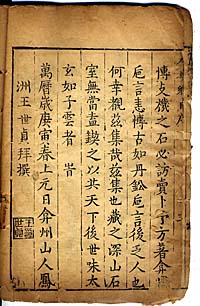 博支機之石必訪賣卜予方著弇州
卮言恚博古如丹鉛卮言後乏人也
何幸覩茲集哉茲集也藏之深山石
室無當盍鍥之以共天下後世味太
玄如子雲者 旹
萬曆歲庚寅春上元日弇州山人鳳
洲王世貞拜撰